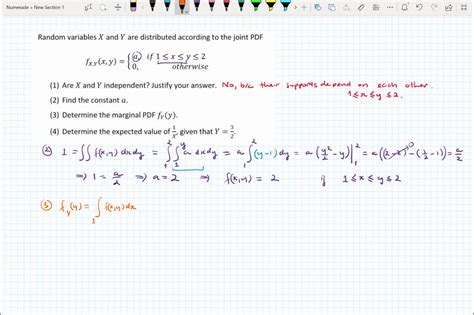 Numerade » New Section 1
Random variables X and Y are distributed according to the joint PDF
f_{X,Y}(x, y) = { a, if 1 ≤ x ≤ y ≤ 2
0, otherwise
(1) Are X and Y independent? Justify your answer. No, b/c their supports depend on each other.
1 ≤ x ≤ y ≤ 2.
(2) Find the constant a.
(3) Determine the marginal PDF f_Y(y).
(4) Determine the expected value of 1/X, given that Y = 3/2.
② 1 = ∬ f(x,y) dx dy = ∫_1^2 ∫_1^y a dx dy = a ∫_1^2 (y-1) dy = a (y²/2 - y) |_1^2 = a((2-2)^0 - (1/2 - 1) = a/2
⇒ 1 = a/2 ⇒ a = 2 ⇒ f(x,y) = 2 if 1 ≤ x ≤ y ≤ 2
③ f_Y(y) = ∫_1 f(x,y) dx